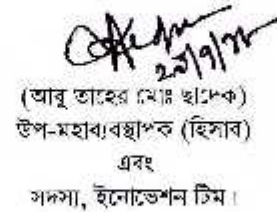 ২৯/৭/২১
(আবু তাহের মোঃ ছাদেক)
উপ-মহাব্যবস্থাপক (হিসাব)
এবং
সদস্য, ইনোভেশন টিম।